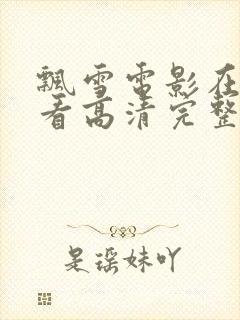 飘雪电影在
看高清完整
是瑶妹吖